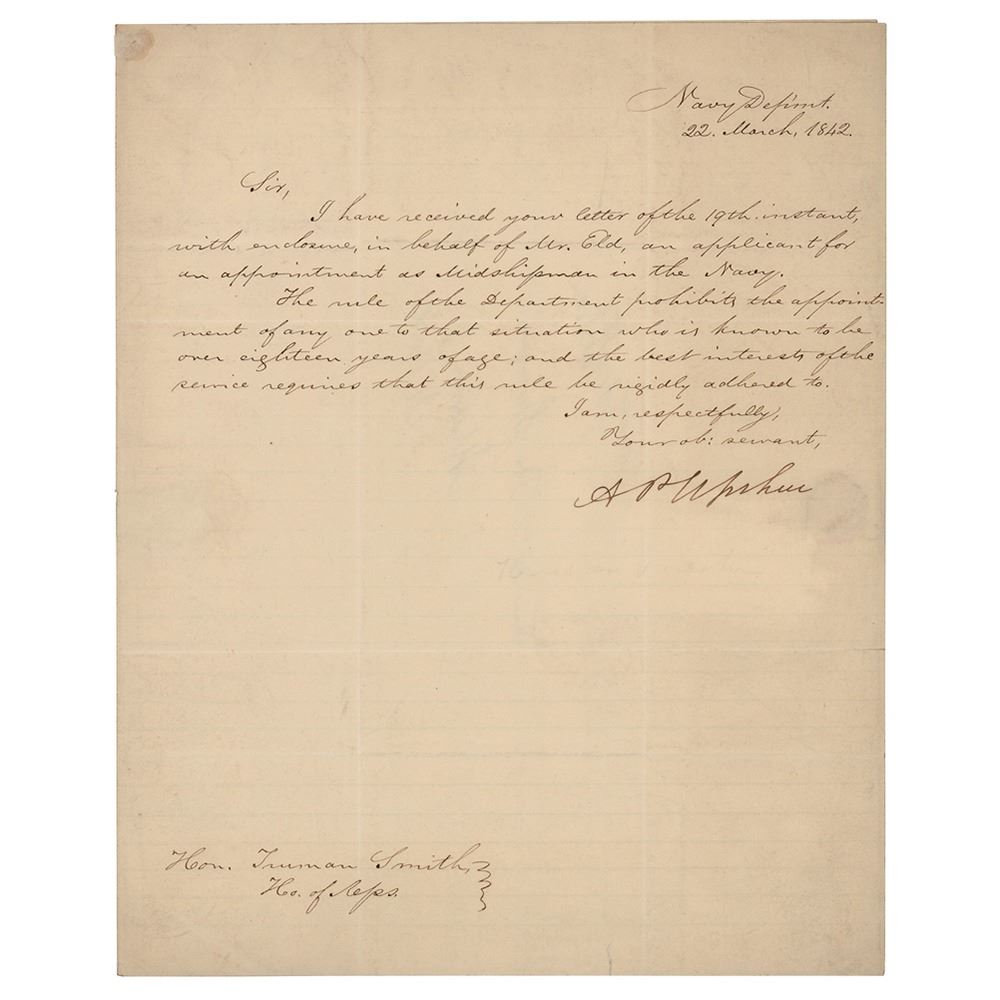 Navy Depmt.
22. March, 1842.
Sir,
I have received your letter of the 19th. instant,
with enclosure, in behalf of Mr. Eld, an applicant for
an appointment as Midshipman in the Navy.
The rule of the Department prohibits the appoint-
ment of any one to that situation who is known to be
over eighteen years of age; and the best interests of the
service requires that this rule be rigidly adhered to.
I am, respectfully,
Your ob: servant,
A P Upshur
Hon. Truman Smith,
Ho. of Reps.